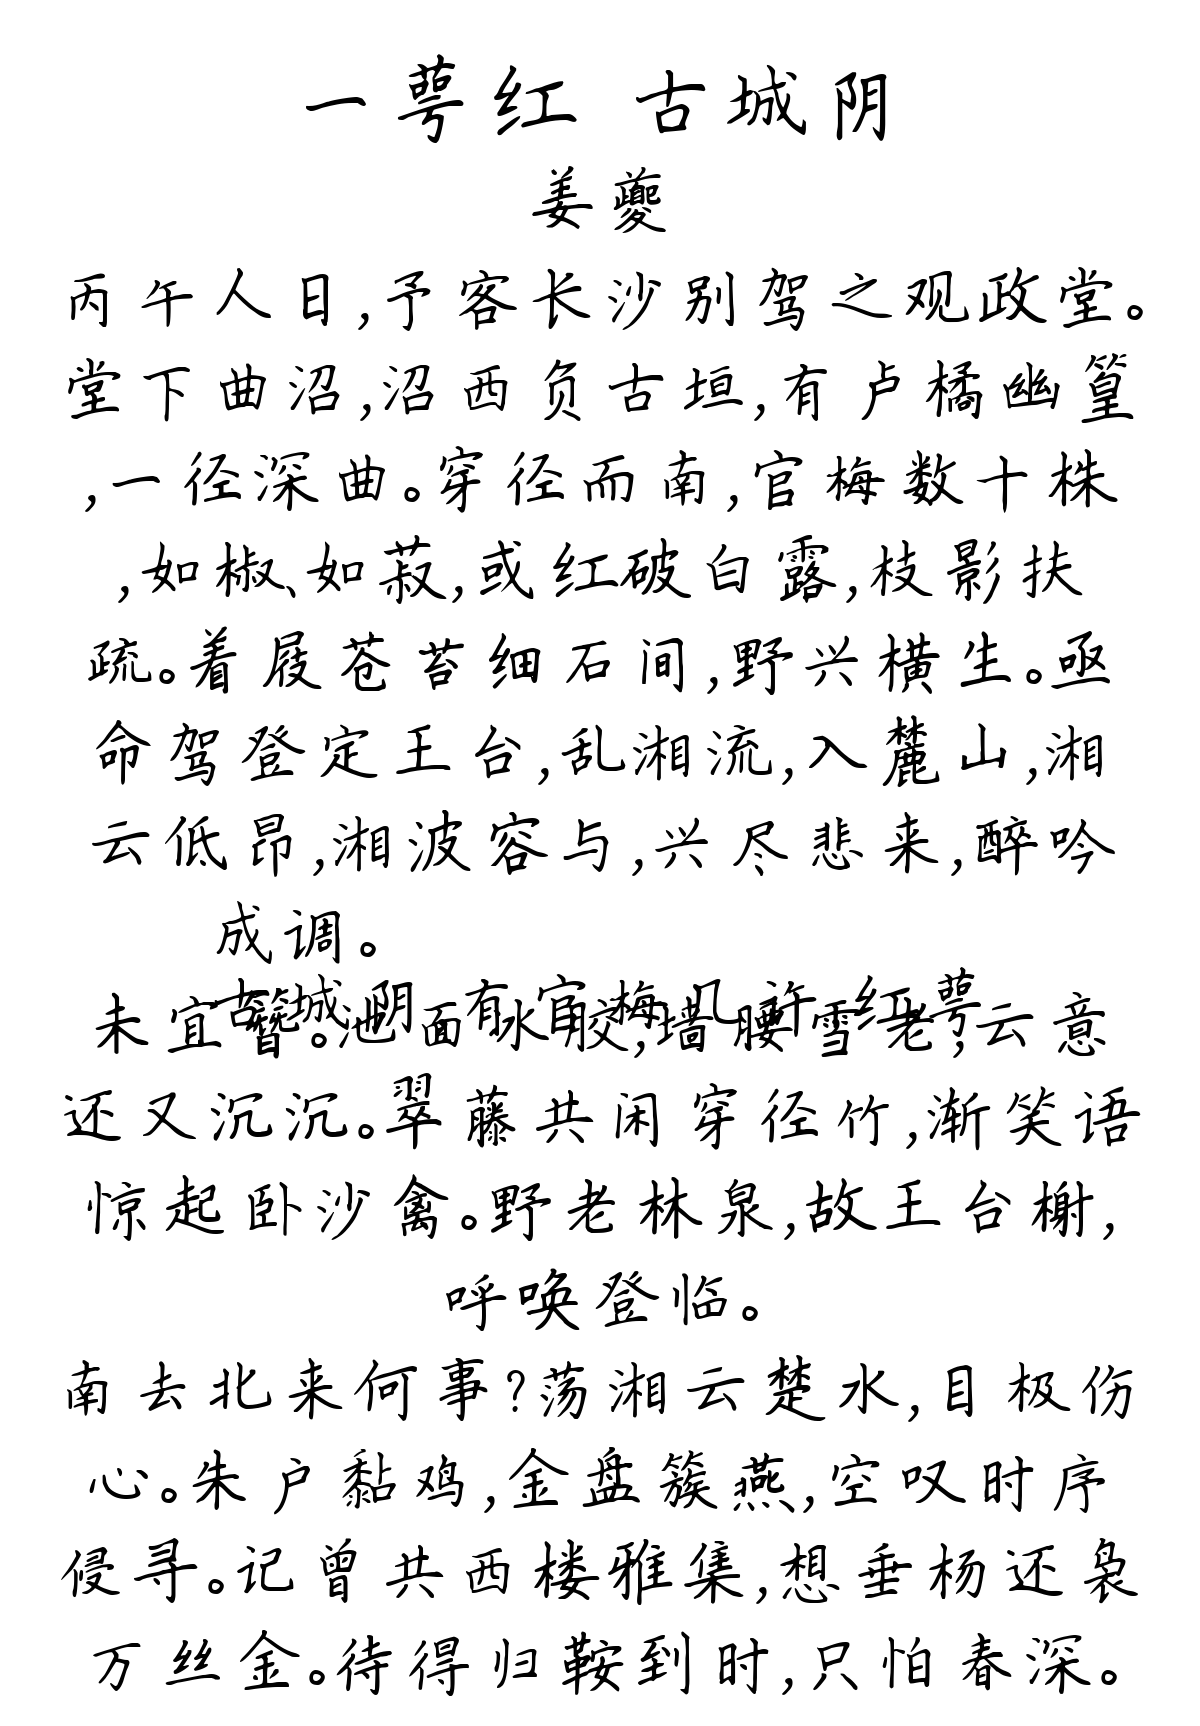 一萼红 古城阴
姜夔
丙午人日,予客长沙别驾之观政堂。
堂下曲沼,沼西负古垣,有卢橘幽篁
,一径深曲。穿径而南,官梅数十株
,如椒、如菽,或红破白露,枝影扶
疏。着屐苍苔细石间,野兴横生。亟
命驾登定王台,乱湘流,入麓山,湘
云低昂,湘波容与,兴尽悲来,醉吟
成调。
古城阴有官梅几许红萼
未宜簪。池面冰胶,墙腰雪老,云意
还又沉沉。翠藤共闲穿径竹,渐笑语
惊起卧沙禽。野老林泉,故王台榭,
呼唤登临。
南去北来何事?荡湘云楚水,目极伤
心。朱户黏鸡,金盘簇燕,空叹时序
侵寻。记曾共西楼雅集,想垂杨还袅
万丝金。待得归鞍到时,只怕春深。